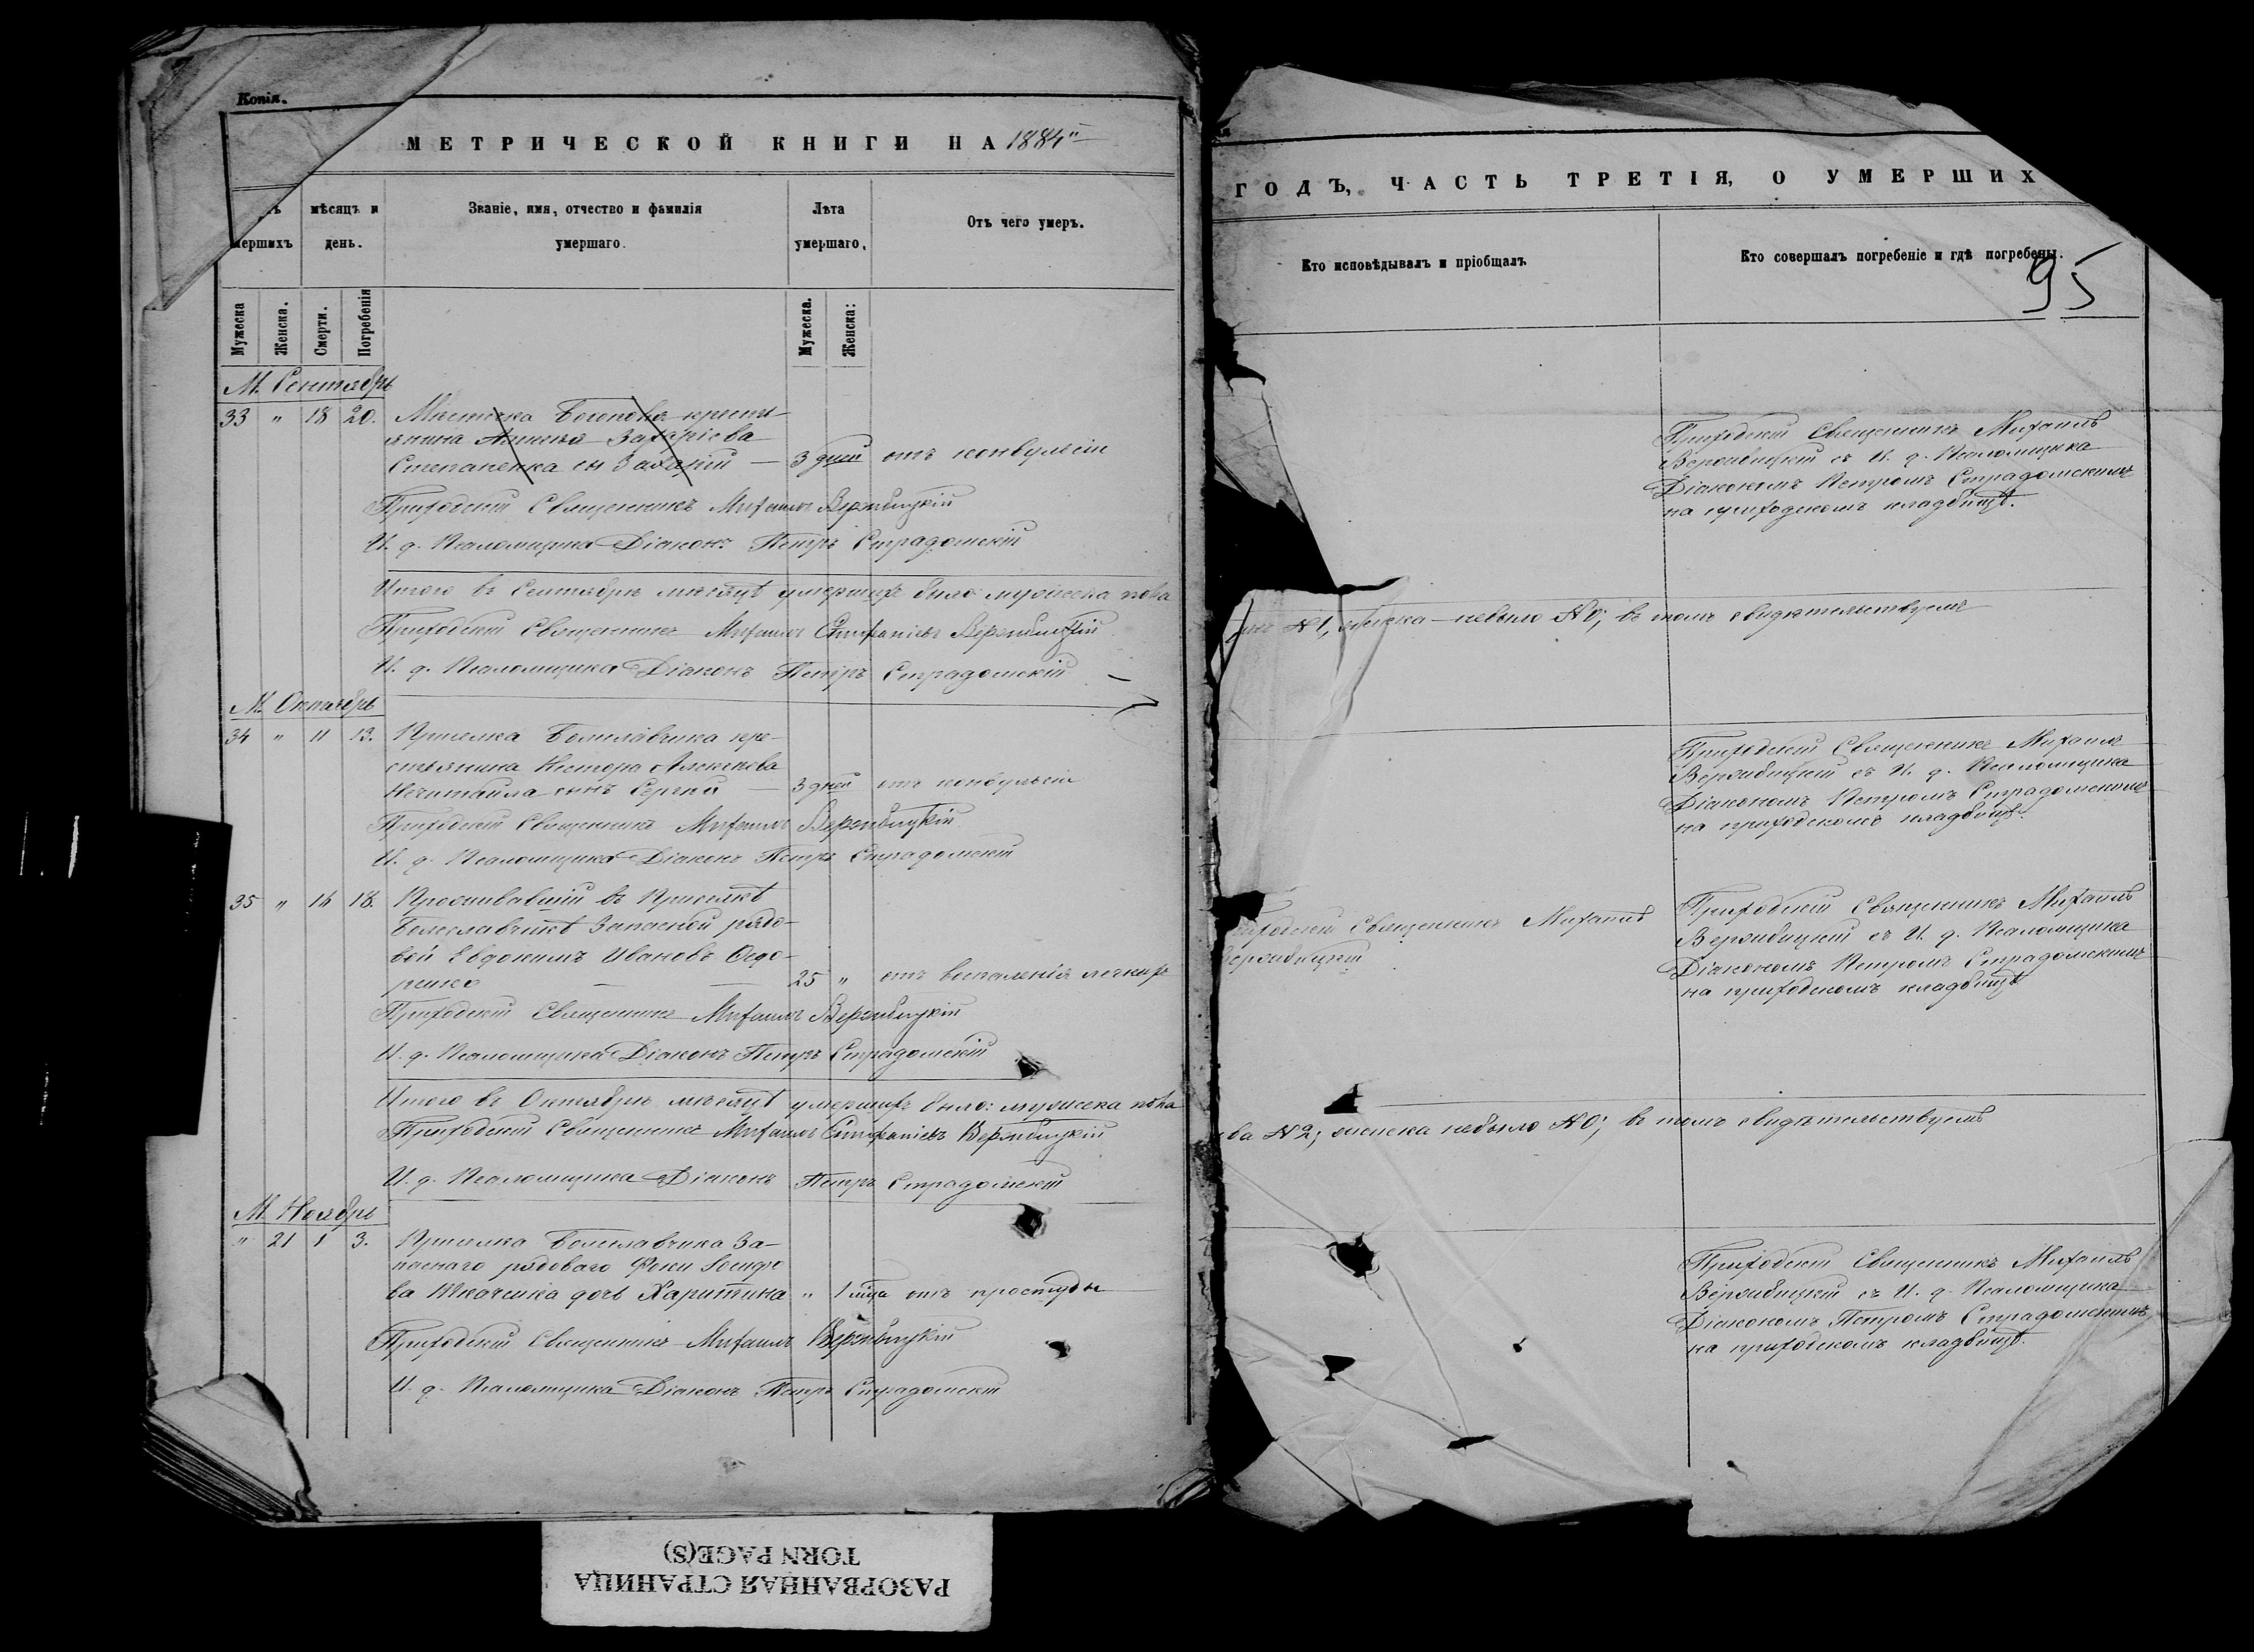 Копія.
МЕТРИЧЕСКОЙ КНИГИ НА 1884
мершихъ
мѣсяцъ и
день.
Званіе, имя, отчество и фамилія
умершаго.
Лѣта
умершаго.
Отъ чего умеръ.
Мужеска
Женска.
Смерти.
Погребенія
Мужеска.
Женска:
М. Сентябрь
33 " 18 20. Мѣстечка кресть-
янина Захаріева
Степаненка сынъ Захарій — 3 дней отъ конвульсіи
Приходскій Священникъ Михаилъ Вержбицкій
И. д. Псаломщика Діаконъ Петръ Страдомскій
Итого въ Сентябрѣ мѣсяцѣ умершихъ было: мужеска пола
Приходскій Священникъ Михаилъ Епифаніевъ Вержбицкій
И. д. Псаломщика Діаконъ Петръ Страдомскій
М. Октябрь
34 " 11 13. Приселка Болеславчика кре-
стьянина Нестора Алексѣева
Нечитайла сынъ Сергій — 3 дней отъ конвульсіи
Приходскій Священникъ Михаилъ Вержбицкій
И. д. Псаломщика Діаконъ Петръ Страдомскій
35 " 16 18. Проживавшій въ Приселкѣ
Болеславчикѣ Запасной рядо-
вой Евдокимъ Ивановъ Ѳедо-
ренко — — 25 " отъ воспаленія легкихъ
Приходскій Священникъ Михаилъ Вержбицкій
И. д. Псаломщика Діаконъ Петръ Страдомскій
Итого въ Октябрѣ мѣсяцѣ умершихъ было: мужеска пола
Приходскій Священникъ Михаилъ Епифаніевъ Вержбицкій
И. д. Псаломщика Діаконъ Петръ Страдомскій
М. Ноябрь
" 21 1 3. Приселка Болеславчика За-
паснаго рядоваго Фоки Іосифо-
ва Ткаченка дочь Харитина " 1 мѣца отъ простуды
Приходскій Священникъ Михаилъ Вержбицкій
И. д. Псаломщика Діаконъ Петръ Страдомскій
ГОДЪ, ЧАСТЬ ТРЕТІЯ, О УМЕРШИХ
Кто исповѣдывалъ и пріобщалъ.
Кто совершалъ погребеніе и гдѣ погребены.
95
Приходскій Священникъ Михаилъ
Вержбицкій съ И. д. Псаломщика
Діакономъ Петромъ Страдомскимъ
на приходскомъ кладбищѣ.
№ 1, женска – небыло № 0; въ томъ свидѣтельствуемъ
Приходскій Священникъ Михаилъ
Вержбицкій съ И. д. Псаломщика
Діакономъ Петромъ Страдомскимъ
на приходскомъ кладбищѣ.
Приходскій Священникъ Михаилъ
Вержбицкій
Приходскій Священникъ Михаилъ
Вержбицкій съ И. д. Псаломщика
Діакономъ Петромъ Страдомскимъ
на приходскомъ кладбищѣ
ва № 2; женска небыло № 0; въ томъ свидѣтельствуемъ
Приходскій Священникъ Михаилъ
Вержбицкій съ И. д. Псаломщика
Діакономъ Петромъ Страдомскимъ
на приходскомъ кладбищѣ.
РАЗОРВАННАЯ СТРАНИЦА
TORN PAGE(S)